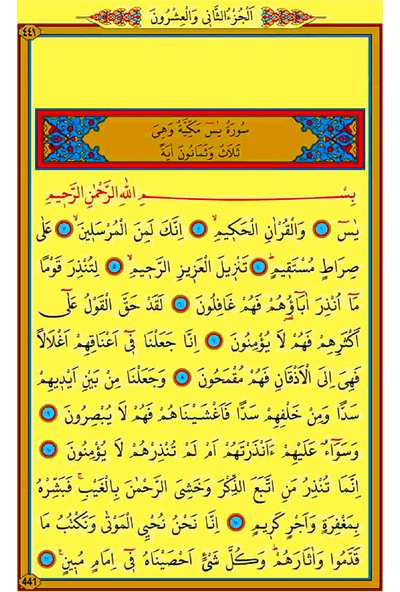 اَلْجُزْءُ الثَّانِي وَالْعِشْرُونَ
٤٤١
سُورَةُ يٰسٓ مَكِّيَّةٌ وَهِيَ
ثَلَاثٌ وَثَمَانُونَ اٰيَةً
بِسْمِ اللّٰهِ الرَّحْمٰنِ الرَّحٖيمِ
يٰسٓ ﴿١﴾ وَالْقُرْاٰنِ الْحَكٖيمِۙ ﴿٢﴾ اِنَّكَ لَمِنَ الْمُرْسَلٖينَۙ ﴿٣﴾ عَلٰى
صِرَاطٍ مُسْتَقٖيمٍۜ ﴿٤﴾ تَنْزٖيلَ الْعَزٖيزِ الرَّحٖيمِۙ ﴿٥﴾ لِتُنْذِرَ قَوْمًا
مَٓا اُنْذِرَ اٰبَٓاؤُ۬هُمْ فَهُمْ غَافِلُونَ ﴿٦﴾ لَقَدْ حَقَّ الْقَوْلُ عَلٰٓى
اَكْثَرِهِمْ فَهُمْ لَا يُؤْمِنُونَ ﴿٧﴾ اِنَّا جَعَلْنَا فٖٓي اَعْنَاقِهِمْ اَغْلَالًا
فَهِيَ اِلَى الْاَذْقَانِ فَهُمْ مُقْمَحُونَ ﴿٨﴾ وَجَعَلْنَا مِنْ بَيْنِ اَيْدٖيهِمْ
سَدًّا وَمِنْ خَلْفِهِمْ سَدًّا فَاَغْشَيْنَاهُمْ فَهُمْ لَا يُبْصِرُونَ ﴿٩﴾
وَسَوَٓاءٌ عَلَيْهِمْ ءَاَنْذَرْتَهُمْ اَمْ لَمْ تُنْذِرْهُمْ لَا يُؤْمِنُونَ ﴿١٠﴾
اِنَّمَا تُنْذِرُ مَنِ اتَّبَعَ الذِّكْرَ وَخَشِيَ الرَّحْمٰنَ بِالْغَيْبِۚ فَبَشِّرْهُ
بِمَغْفِرَةٍ وَاَجْرٍ كَرٖيمٍ ﴿١١﴾ اِنَّا نَحْنُ نُحْيِ الْمَوْتٰى وَنَكْتُبُ مَا
قَدَّمُوا وَاٰثَارَهُمْۜ وَكُلَّ شَيْءٍ اَحْصَيْنَاهُ فٖٓي اِمَامٍ مُبٖينٍ۟ ﴿١٢﴾
441